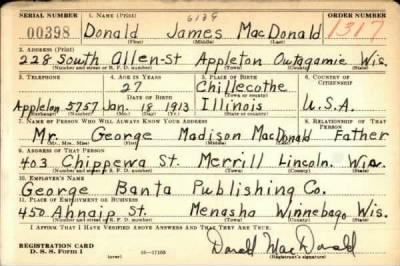 SERIAL NUMBER 1. NAME (Print) 6139 ORDER NUMBER
00398 Donald James MacDonald 1317
(First) (Middle) (Last)
2. ADDRESS (Print)
228 South Allen-St Appleton Outagamie Wis.
(Number and street or R. F. D. number) (Town) (County) (State)
3. TELEPHONE 4. AGE IN YEARS 5. PLACE OF BIRTH 6. COUNTRY OF CITIZENSHIP
27 Chillecothe
DATE OF BIRTH (Town or county)
Appleton 5757 Jan. 18 1913 Illinois U.S.A.
(Exchange) (Number) (Mo.) (Day) (Yr.) (State or country)
7. NAME OF PERSON WHO WILL ALWAYS KNOW YOUR ADDRESS 8. RELATIONSHIP OF THAT PERSON
Mr. George Madison MacDonald Father
(Mr., Mrs., Miss) (First) (Middle) (Last)
9. ADDRESS OF THAT PERSON
403 Chippewa St. Merrill Lincoln. Wis.
(Number and street or R. F. D. number) (Town) (County) (State)
10. EMPLOYER'S NAME
George Banta Publishing Co.
11. PLACE OF EMPLOYMENT OR BUSINESS
450 Ahnaip St. Menasha Winnebago Wis.
(Number and street or R. F. D. number) (Town) (County) (State)
I AFFIRM THAT I HAVE VERIFIED ABOVE ANSWERS AND THAT THEY ARE TRUE.
REGISTRATION CARD
D. S. S. Form 1 (over) Donald MacDonald
(Registrant's signature)